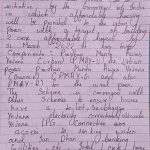 initiative by the Government of India
in which affordable housing
will be provided to the urban
Poor with a target of building
2 crore affordable houses by
31 March 2022. It has two
Components Pradhan Mantri Awas
Yojana (Urban) (PMAY-U) for Urban
Poor and Pradhan Mantri Awas Yojana
(Gramin) (PMAY-G and also
(PMAY-R) for the rural poor.
The Scheme is converged with
Other Schemes to ensure houses
have a toilet, Saubhagya
Yojana electricity connectivity, Ujjwala
Yojana LPG Connection
access to drinking water
and Jan Dhan banking